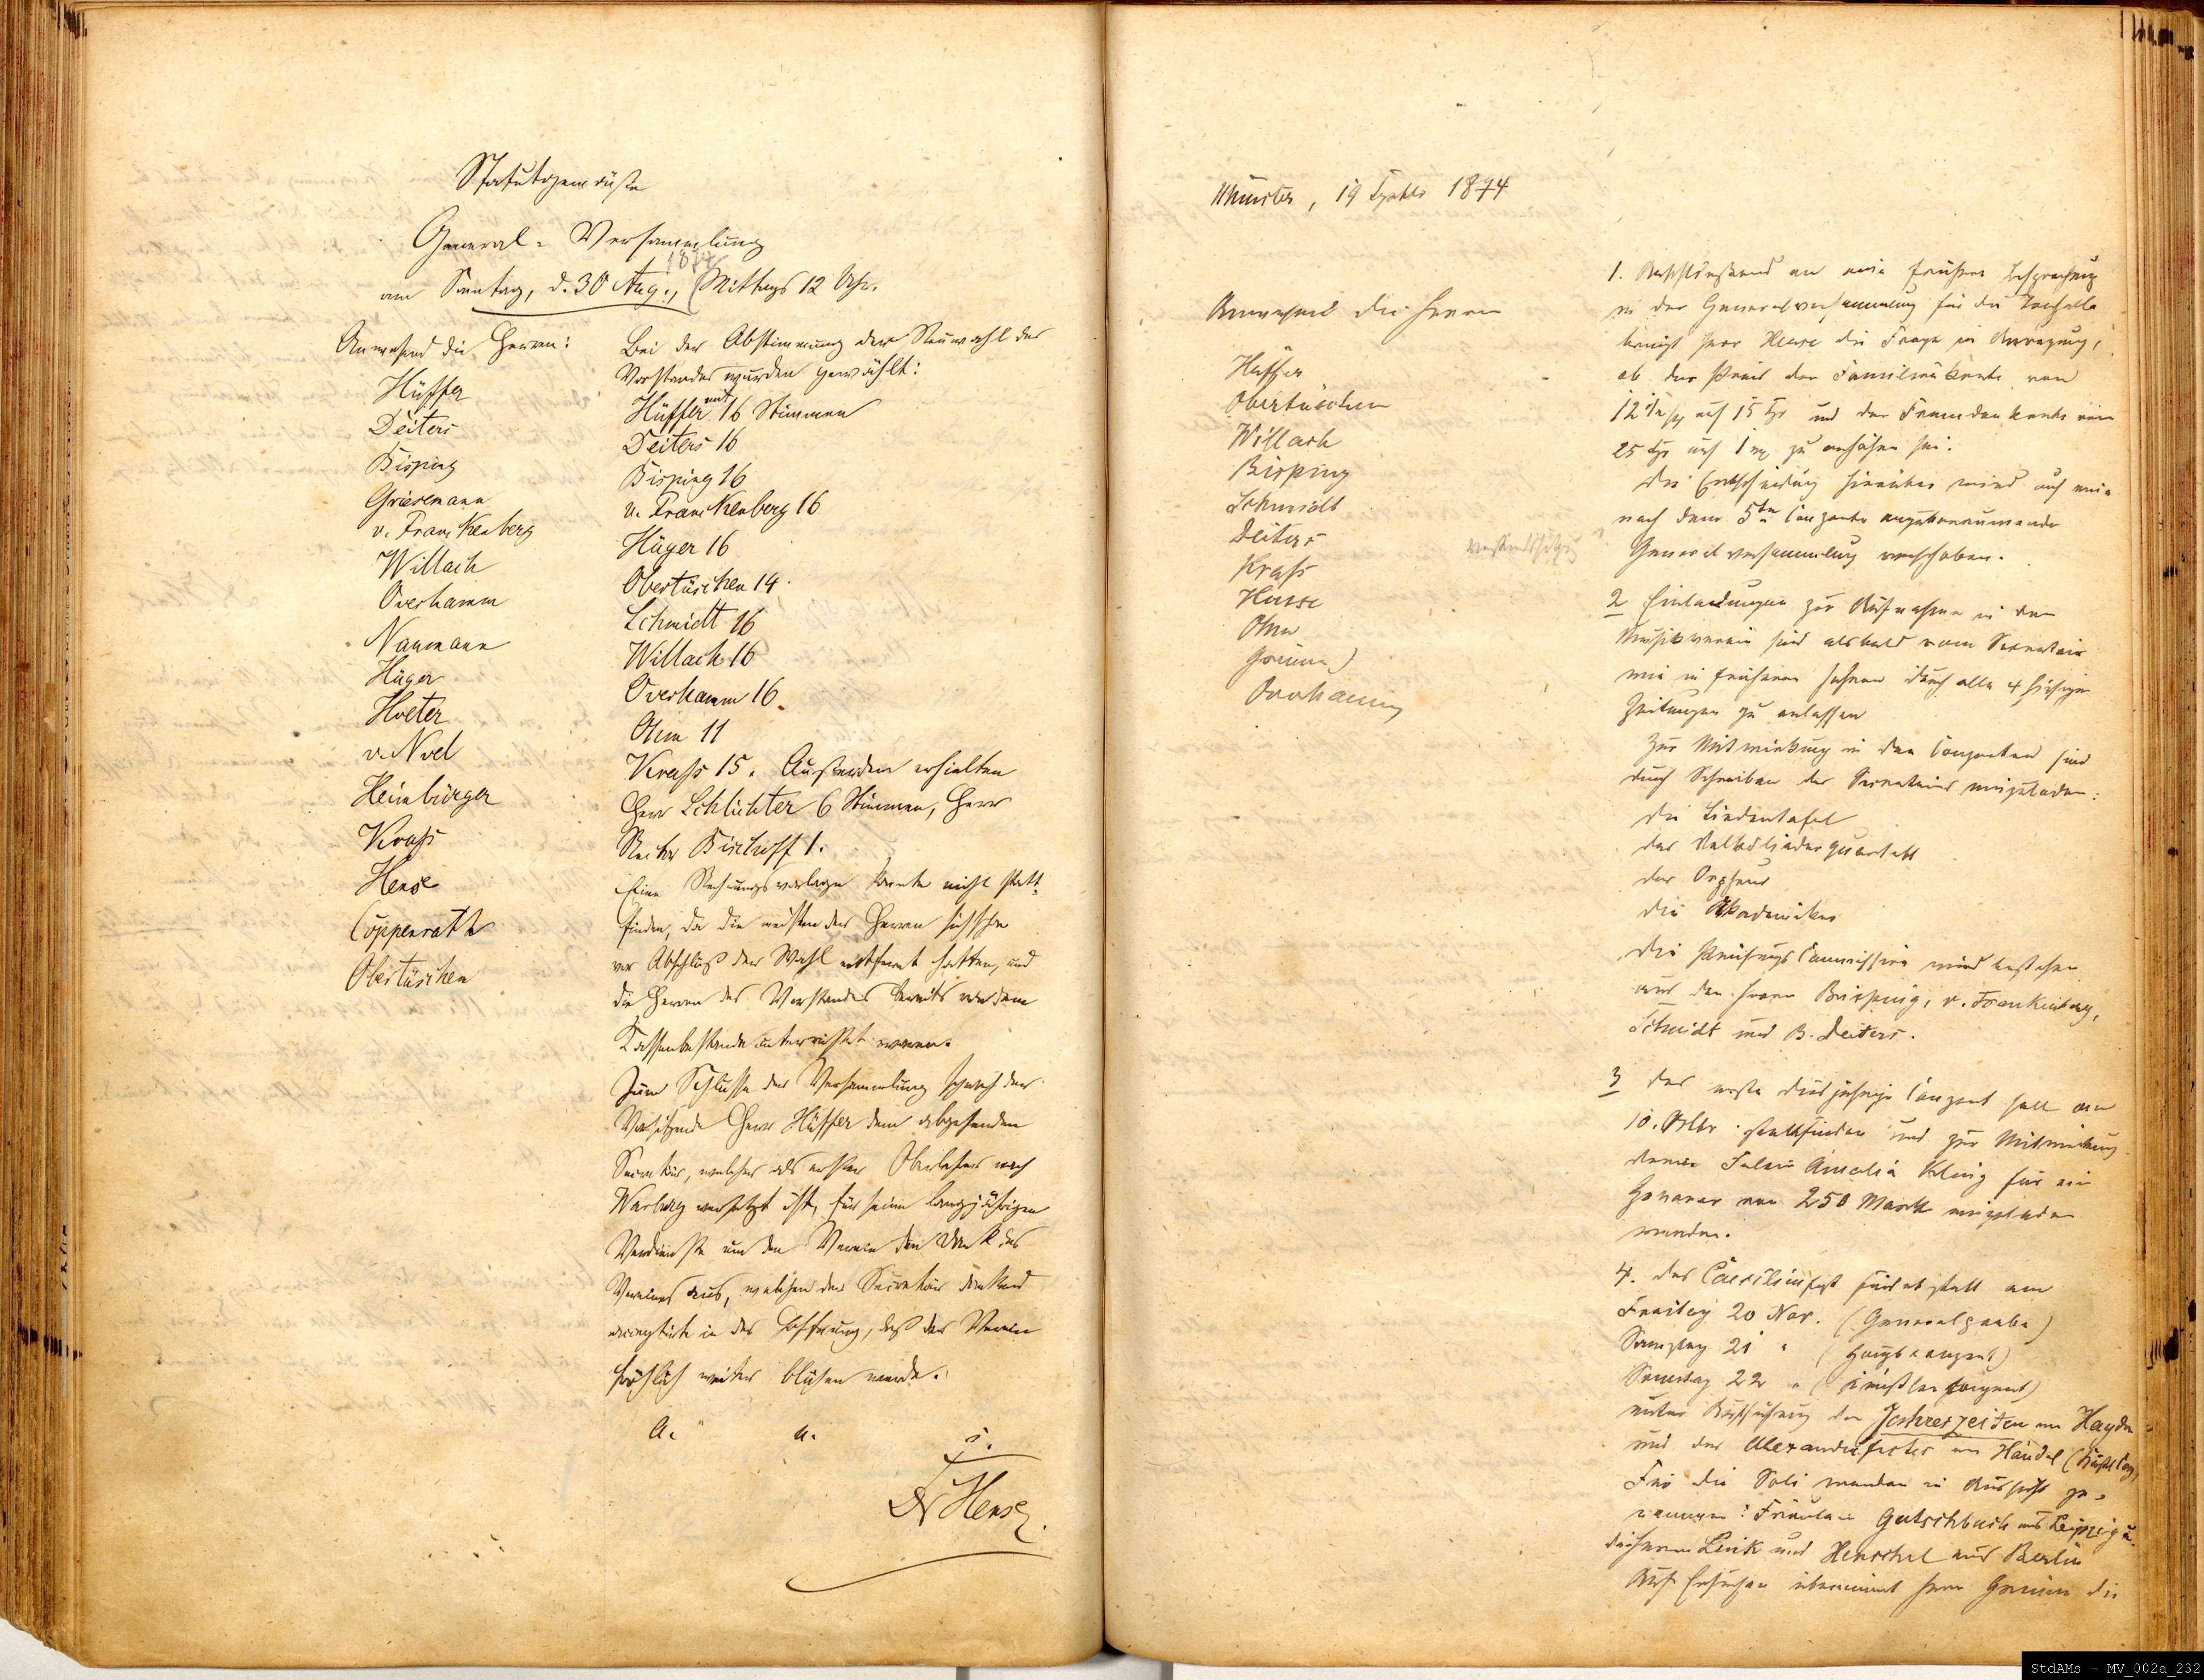 Statutgemäße
General-Versammlung
1874
am Sonntag, d. 30 Aug., Mittags 12 Uhr.
Anwesend die Herren:
Hüffer
Deiters
Bisping
Griesemann
v. Franckenberg
Willach
Overhamm
Naumann
Hüger
Hoeter
v. Noel
Heimbürger
Krass
Hense
Coppenrath
Obertüschen
Bei der Abstimmung der Neuwahl des
Vorstandes wurden gewählt:
Hüffer mit 16 Stimmen
Deiters 16
Bisping 16
v. Franckenberg 16
Hüger 16
Obertüschen 14.
Schmidt 16
Willach 16
Overhamm 16.
Ohm 11
Krass 15. Außerdem erhielten
Herr Schlichter 6 Stimmen, Herr
Bischoff 1.
Eine Rechnungsvorlage konnte nicht statt-
finden, da die meisten der Herren sich schon
vor Abschluß der Wahl entfernt hatten, und
die Herren des Vorstandes bereits von dem
Kassenbestande unterrichtet waren.
Zum Schlusse der Versammlung sprach der
Vorsitzende Herr Hüffer dem abgehenden
Secretär, welcher als erster Oberlehrer nach
Warburg versetzt ist, für seine langjährigen
Verdienste um den Verein den Dank des
Vereines aus, welchen der Secretär dankend
acceptirte in der Hoffnung, daß der Verein
fröhlich weiter blühen werde.
a. u. s.
Dr Hense.
Münster, 19 Sptbr 1874
Anwesend die Herren
Hüffer
Obertüschen
Willach
Bisping
Schmidt
Deiters
Krass
Hense
Ohm
Grimm
Overhamm
Vorstandssitzung
1. Anschließend an eine frühere Besprechung
in der Generalversammlung für die Tonhalle
bringt Herr Hense die Frage in Anregung,
ob der Preis der Familienkarte von
12 1/2 auf 15 Sgr und der Fremdenkarte von
25 Sgr auf 1 zu erhöhen sei.
Die Entscheidung hierüber wird auf eine
nach dem 5ten Conzerte anzuberaumende
Generalversammlung verschoben.
2 Einladungen zur Aufnahme in den
Musikverein sind alsbald vom Secretair
wie in früheren Jahren durch alle 4 hiesigen
Zeitungen zu erlassen
Zur Mitwirkung in den Conzerten sind
durch Schreiben des Secretairs einzuladen:
die Liedertafel
das Volksliederquartett
der Orpheus
die Akademiker
Die Prüfungs Commission wird bestehen
aus den Herren Bisping, v. Frankenberg,
Schmidt und B. Deiters.
3 Das erste diesjährige Conzert soll am
10. Oktbr. stattfinden und zur Mitwirkung
Amalia Kling für ein
Honorar von 250 Mark eingeladen
werden.
4. Das Caecilienfest findet statt am
Freitag 20 Nov. (Generalprobe)
Samstag 21 " (Hauptconzert)
Sonntag 22 " (Künstlerconzert)
unter Aufführung der Jahreszeiten von Haydn
und des Alexanderfestes von Händel
Für die Soli werden in Aussicht ge-
nommen: Fräulein Gutschbach aus Leipzig u.
die Herren Link und Henschel aus Berlin
Auf Ersuchen übernimmt Herr Grimm die
StdAMs - MV_002a_232